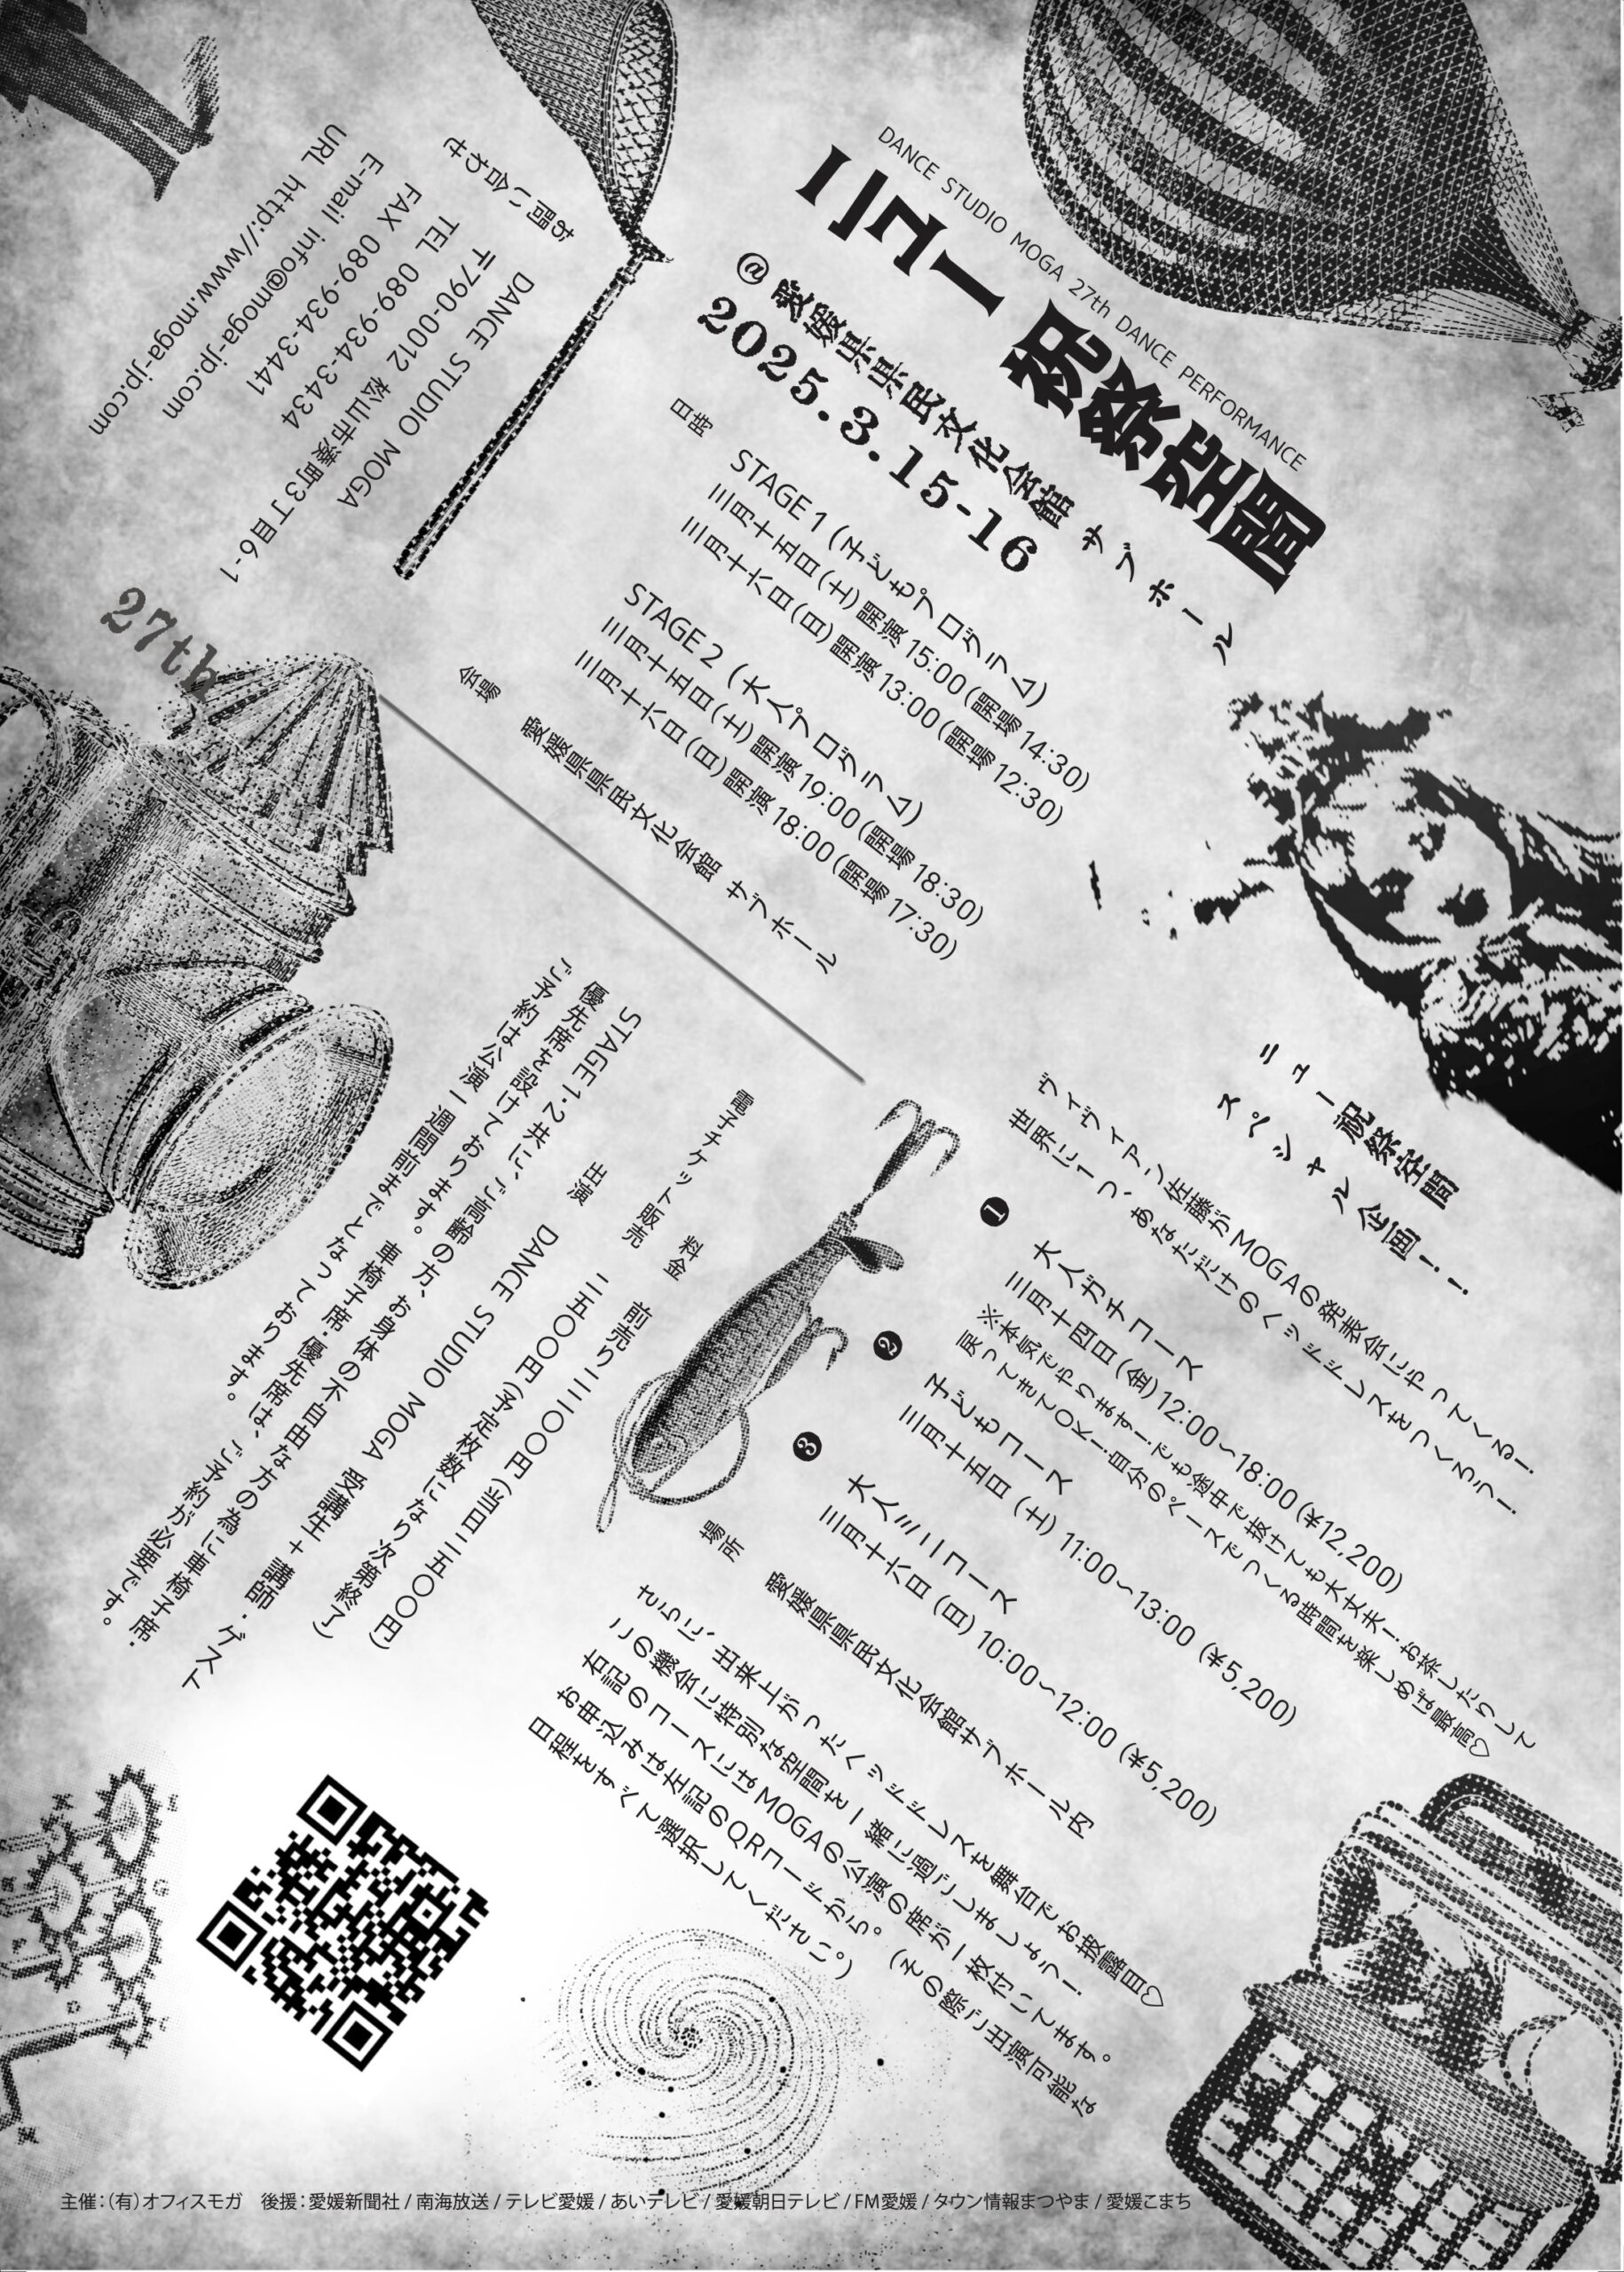 DANCE STUDIO MOGA 27th DANCE PERFORMANCE
ニュー 祝祭空間
@ 愛媛県県民文化会館 サブホール
2025.3.15-16
日時
STAGE 1 (子どもプログラム)
三月十五日(土) 開演 15:00 (開場 14:30)
三月十六日(日) 開演 13:00 (開場 12:30)
STAGE 2 (大人プログラム)
三月十五日(土) 開演 19:00 (開場 18:30)
三月十六日(日) 開演 18:00 (開場 17:30)
会場
愛媛県県民文化会館 サブホール
お問い合わせ
DANCE STUDIO MOGA
〒790-0012 松山市湊町3丁目6-1
TEL 089-934-3434
FAX 089-934-3441
E-mail info@moga-jp.com
URL http://www.moga-jp.com
27th
電子チケット販売
料金 前売り二二〇〇円(当日二五〇〇円)
二五〇〇円(予定枚数になり次第終了)
出演 DANCE STUDIO MOGA 受講生 + 講師・ゲスト
STAGE 1・2 共に、ご高齢の方、お身体の不自由な方の為に車椅子席・
優先席を設けております。 車椅子席・優先席は、ご予約が必要です。
ご予約は公演一週間前までとなっております。
ニュー祝祭空間
スペシャル企画!!
ヴィヴィアン佐藤がMOGAの発表会にやってくる!
世界に1つ、あなただけのヘッドドレスをつくろう!
❶ 大人ガチコース
三月十四日(金)12:00~18:00 (¥12,200)
※本気でやります!でも途中で抜けても大丈夫!お茶したりして
戻ってきてOK!自分のペースでつくる時間を楽しめば最高♡
❷ 子どもコース
三月十五日 (土) 11:00~13:00 (¥5,200)
❸ 大人ミニコース
三月十六日 (日) 10:00~12:00 (¥5,200)
場所
愛媛県県民文化会館サブホール内
さらに、出来上がったヘッドドレスを舞台でお披露目♡
この機会に特別な空間を一緒に過ごしましょう!
右記のコースにはMOGAの公演の席が一枚付いてます。
お申込みは左記のQRコードから。 (その際ご出演可能な
日程をすべて選択してください。)
主催:(有)オフィスモガ 後援:愛媛新聞社 / 南海放送 / テレビ愛媛 / あいテレビ / 愛媛朝日テレビ / FM愛媛 / タウン情報まつやま / 愛媛こまち